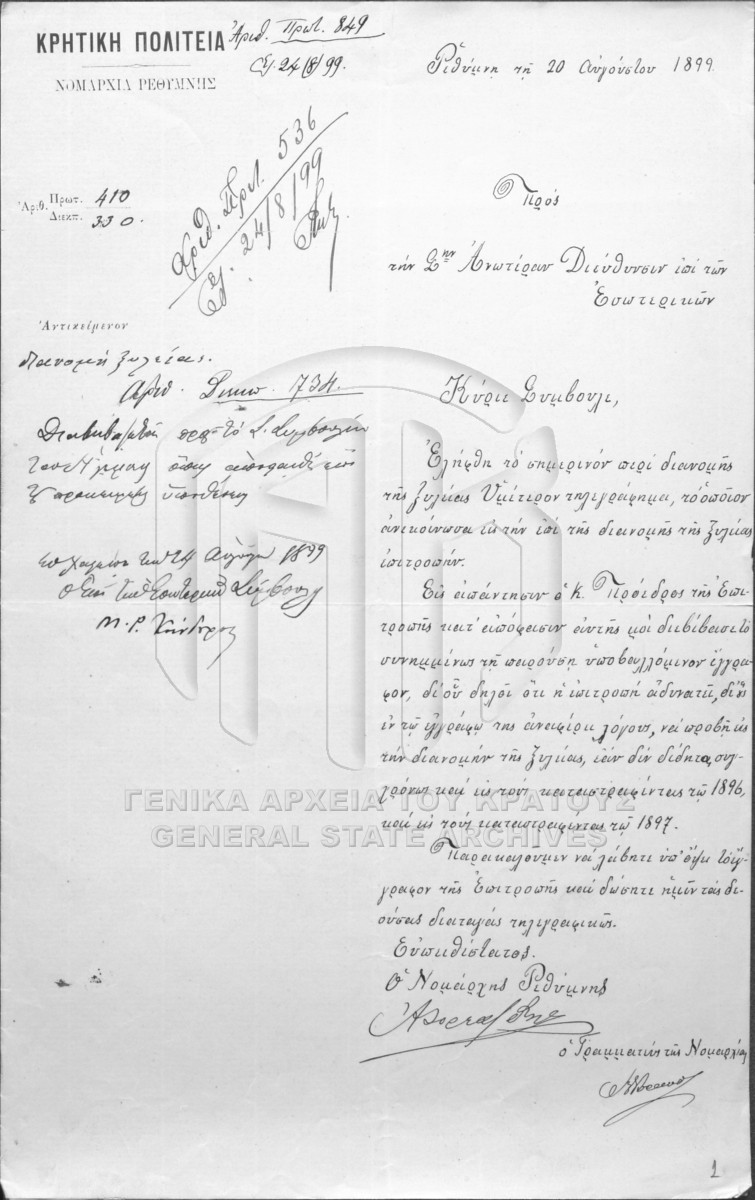 ΚΡΗΤΙΚΗ ΠΟΛΙΤΕΙΑ
ΝΟΜΑΡΧΙΑ ΡΕΘΥΜΝΗΣ
Ἀριθ. Πρωτ. 849
24/8/99.
Ῥεθύμνῃ τῇ 20 Αὐγούστου 1899
Ἀριθ. Πρωτ. 536
24/8/99
Ἀριθ. Πρωτ. 410
Διεκπ. 330.
Πρὸς
τὴν Σ. Ἀνωτέραν Διεύθυνσιν ἐπὶ τῶν
Ἐσωτερικῶν
Ἀντικείμενον
διανομὴ ξυλείας.
Ἀριθ. Διεκπ. 734.
Διαβιβάζεται πρὸς τὸ Σ. Συμβούλιον
ὑποθέσεως
Ἐν Χανίοις τῇ 24 Αὐγούστου 1899
Ὁ ἐπὶ τῶν Ἐσωτερικῶν Σύμβουλος
Μ. Ρ. Κούνδουρος
Κύριε Σύμβουλε,
Ἐλήφθη τὸ σημερινὸν περὶ διανομῆς
τῆς ξυλείας Ὑμέτερον τηλεγράφημα, τὸ ὁποῖον
ἀνεκοίνωσα εἰς τὴν ἐπὶ τῆς διανομῆς τῆς ξυλείας
ἐπιτροπήν.
Εἰς ἀπάντησιν ὁ κ. Πρόεδρος τῆς Ἐπι
τροπῆς κατ' ἀπόφασιν αὐτῆς μοὶ διεβίβασε τὸ
συνημμένως τῇ παρούσῃ ὑποβαλλόμενον ἔγγρα
φον, δι' οὗ δηλοῖ ὅτι ἡ ἐπιτροπὴ ἀδυνατεῖ, δι' οὓς
ἐν τῷ ἐγγράφῳ της ἀναφέρει λόγους, νὰ προβῇ εἰς
τὴν διανομὴν τῆς ξυλείας, ἐὰν δὲν δίδηται συγ
χρόνως καὶ εἰς τοὺς καταστραφέντας τῷ 1896,
καὶ εἰς τοὺς καταστραφέντας τῷ 1897.
Παρακαλοῦμεν νὰ λάβητε ὑπ' ὄψει τὸ ἔγ
γραφον τῆς Ἐπιτροπῆς καὶ δώσητε ἡμῖν τὰς δε
ούσας διαταγὰς τηλεγραφικῶς.
Εὐπειθέστατος.
Ὁ Νομάρχης Ῥεθύμνης
ὁ Γραμματεὺς τῆς Νομαρχίας
ΓΕΝΙΚΑ ΑΡΧΕΙΑ ΤΟΥ ΚΡΑΤΟΥΣ
GENERAL STATE ARCHIVES
1